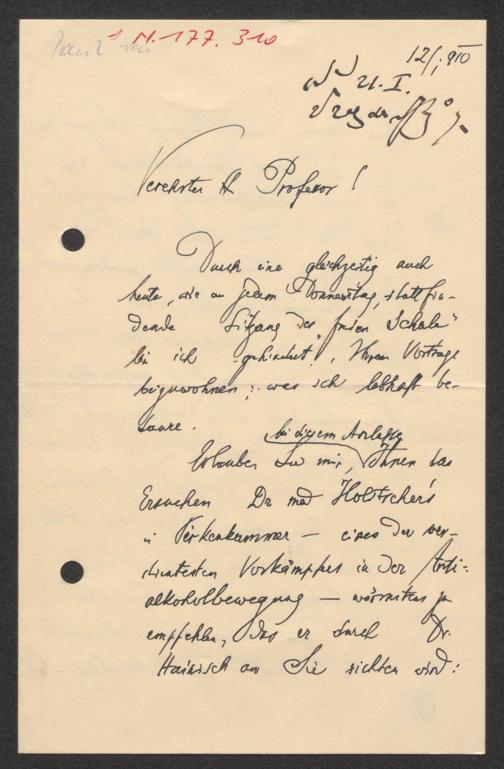 N. 177. 310
12/I. 910
21. I.
Verehrter H Professor!
Durch eine gleichzeitig auch
heute, wie an jedem Donnerstag, stattfin-
dende Sitzung der "freien Schule"
bin ich gehindert, Ihrem Vortrage
beizuwohnen; was ich lebhaft be-
daure.
bei diesem Anlasse
Erlauben Sie mir, Ihnen das
Ersuchen Dr med Holitscher's
in Pirkenhammer — eines der ver-
dientesten Vorkämpfer in der Anti-
alkoholbewegung — wärmstens zu
empfehlen, das er durch Dr.
Hainisch an Sie richten wird: